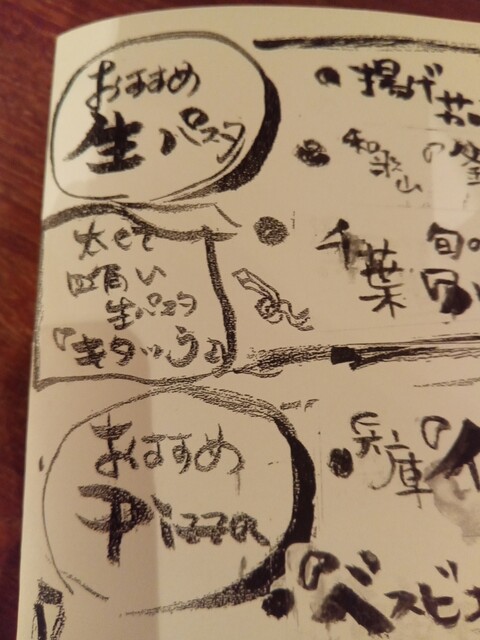 おすすめ
生パスタ
太くて
四角い
生パスタ
『キタッラ』
おすすめ
Pizza
揚げ茄
和歌山の
千葉 旬の
兵庫『イ
『ベスビオ